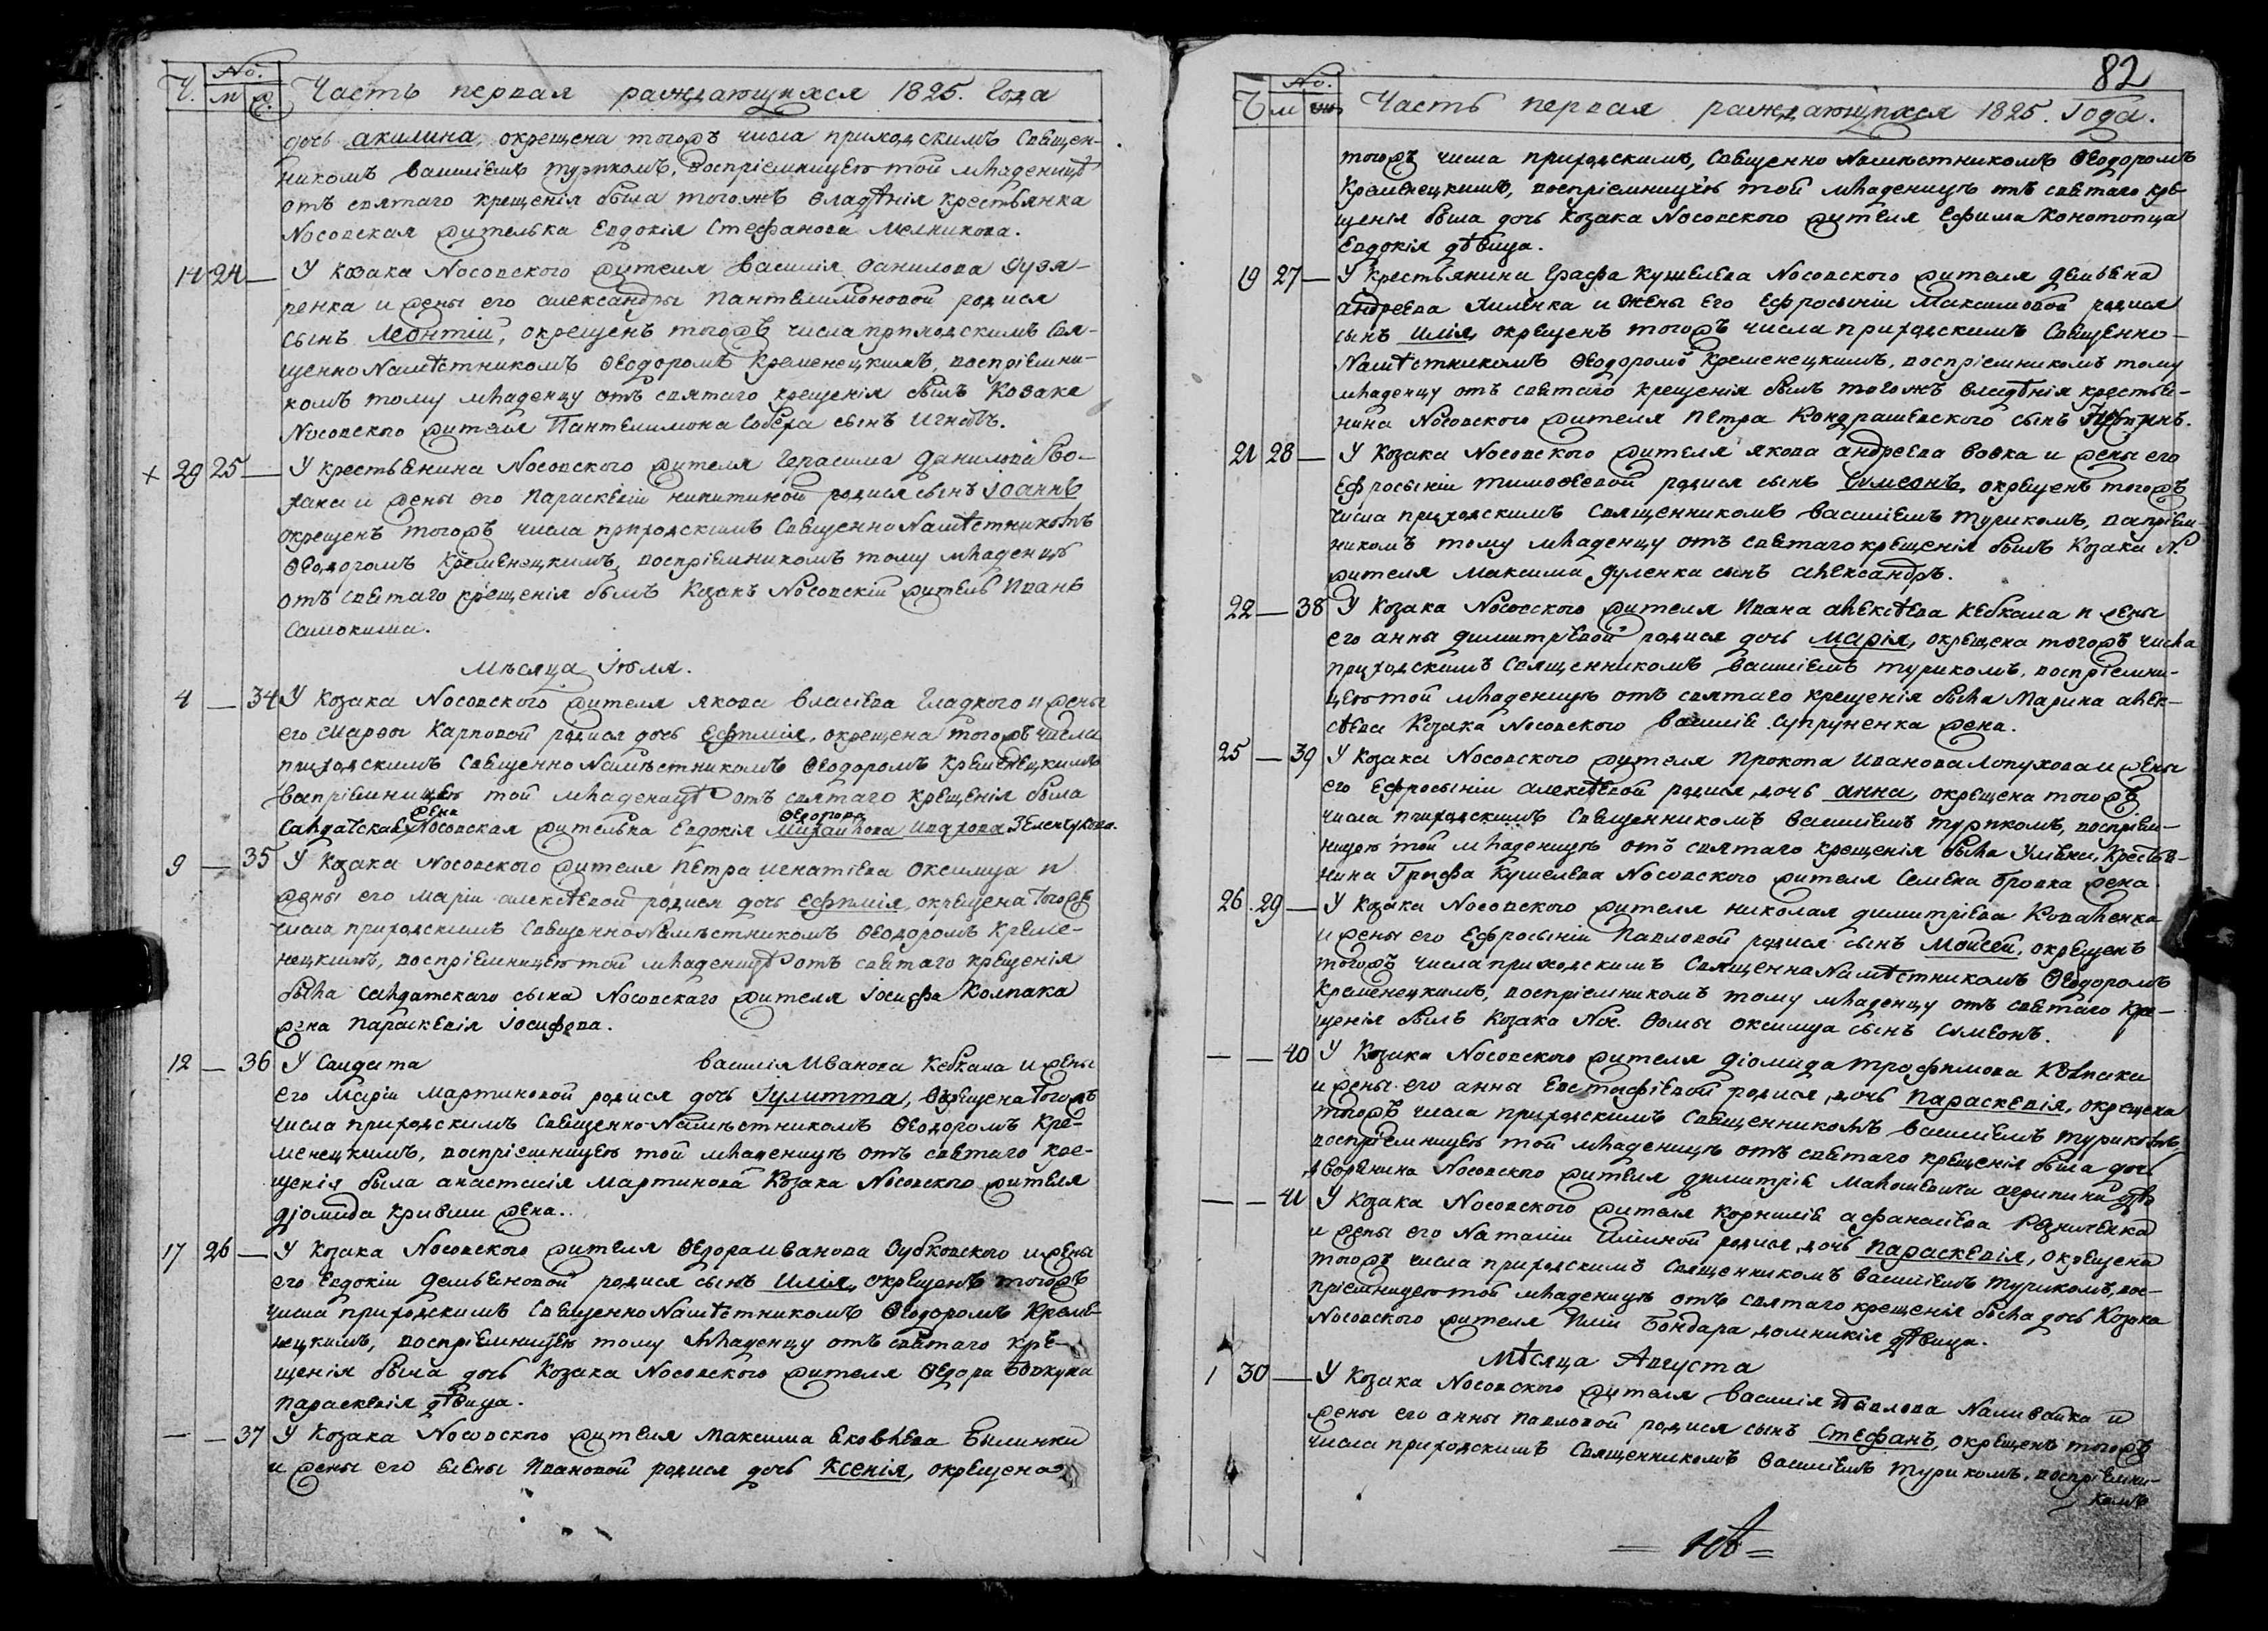 Ч. No. м ж Часть первая раждающихся 1825. Года
дочь акилина, окрещена тогожъ числа приходскимъ Священ-
никомъ Василіемъ Турикомъ, воспріемницею той младеницѣ
отъ святаго крещенія была тогожъ владѣнія крестьянка
Носовская жителька Евдокія Стефанова Мелникова.
14 24 — У козака Носовского жителя Василія Данилова
ренка и жены его александры Пантелимоновой родися
сынъ Леонтій, окрещенъ тогожъ числа приходскимъ Свя-
щенно Намѣстникомъ Ѳеодоромъ Кременецкимъ, воспріемни-
комъ тому младенцу отъ святаго крещенія былъ Козака
Носовского жителя Пантелимона сынъ Игнатъ.
+ 29 25 — У крестьянина Носовского жителя Герасима Данилова
и жены его Параскевіи никитиной родися сынъ Іоаннъ
окрещенъ тогожъ числа приходскимъ Священно Намѣстникомъ
Ѳеодоромъ Кременецкимъ, воспріемникомъ тому младенцу
отъ святаго крещенія былъ Козакъ Носовскій житель Иванъ
Самокиша.
Мѣсяца Іюля.
4 — 34 У Козака Носовского жителя якова власіева Гладкого и жены
его Марѳы Карповой родися дочь Ефимія, окрещена тогожъ числа
приходскимъ Священно Намѣстникомъ Ѳеодоромъ Кременецкимъ
воспріемницею той младеницѣ отъ святаго крещенія была
жена Ѳедорова
Салдатская Носовская жителька Евдокія Михайлова
9 — 35 У Козака Носовского жителя Петра игнатіева Оксюта и
жены его маріи алексѣевой родися дочь Ефимія, окрещена тогожъ
числа приходскимъ Священно Намѣстникомъ Ѳеодоромъ Креме-
нецкимъ, воспріемницею той младеницѣ отъ святаго крещенія
была салдатскаго сына Носовскаго жителя Іосифа Колпака
жена параскевія Іосифова.
12 — 36 У Салдата василія Иванова Кебкала и жены
его Маріи мартиновой родися дочь Іулитта, окрещена тогожъ
числа приходскимъ Священно-Намѣстникомъ Ѳеодоромъ Кре-
менецкимъ, воспріемницею той младеницѣ отъ святаго кре-
щенія была анастасія мартинова Козака Носовского жителя
діомида кривши жена.
17 26 — У Козака Носовского жителя Ѳедора иванова Зубковского и жены
его Евдокіи демьяновой родися сынъ Илія, окрещенъ тогожъ
числа приходскимъ Священно Намѣстникомъ Ѳеодоромъ Креме-
нецкимъ, воспріемницею тому младенцу отъ святаго кре-
щенія была дочь Козака Носовского жителя Ѳедора
параскевія дѣвица.
— — 37 У Козака Носовского жителя Максима яковлева Былинки
и жены его елены Ивановой родися дочь Ксенія, окрещена
82
Ч. No. м ж Часть первая раждающихся 1825. Года.
тогожъ числа приходскимъ, Священно Намѣстникомъ Ѳеодоромъ
Кременецкимъ, воспріемницею той младеницѣ отъ святаго кре-
щенія была дочь Козака Носовского жителя Ефима Конотопца
Евдокія дѣвица.
19 27 — У крестьянина Графа Кушелева Носовского жителя Демьяна
андреева и жены его Ефросыніи Максимовой родися
сынъ Илія, окрещенъ тогожъ числа приходскимъ Священно-
Намѣстникомъ Ѳеодоромъ Кременецкимъ, воспріемникомъ тому
младенцу отъ святаго крещенія былъ тогожъ владѣнія крестья-
нина Носовского жителя Петра Кондрашевского сынъ
21 28 — У Козака Носовского жителя якова андреева вовка и жены его
Ефросыніи тимоѳеевой родися сынъ Сумеонъ, окрещенъ тогожъ
числа приходскимъ Священникомъ Василіемъ Турикомъ, воспріем-
никомъ тому младенцу отъ святаго крещенія былъ Козака N.
жителя Максима Дуленка сынъ александръ.
22 — 38 У Козака Носовского жителя Ивана алексѣева Кебкала и жены
его анны Димитріевой родися дочь Марія, окрещена тогожъ числа
приходскимъ Священникомъ Василіемъ Турикомъ, воспріемни-
цею той младеницѣ отъ святаго крещенія была Марина алек-
сѣева Козака Носовского Василія Супруненка жена.
25 — 39 У Козака Носовского жителя Прокопа Иванова Лопухова и жены
его Ефросыніи алексѣевой родися дочь анна, окрещена тогожъ
числа приходскимъ Священникомъ Василіемъ Турикомъ, воспріем-
ницею той младеницѣ отъ святаго крещенія была крестья-
нина Графа Кушелева Носовского жителя Семена бровка жена.
26 29 — У Козака Носовского жителя николая димитріева Коваленка
и жены его Ефросыніи Павловой родися сынъ Моисей, окрещенъ
тогожъ числа приходскимъ Священно Намѣстникомъ Ѳеодоромъ
Кременецкимъ, воспріемникомъ тому младенцу отъ святаго кре-
щенія былъ Козака Нос. Ѳомы оксюта сынъ Сумеонъ.
— — 40 У Козака Носовского жителя діомида трофимова Колпака
и жены его анны Евстафіевой родися дочь Параскевія, окрещена
тогожъ числа приходскимъ Священникомъ Василіемъ Турикомъ,
воспріемницею той младеницѣ отъ святаго крещенія была дочь
дворянина Носовского жителя димитрія агрипина
— — 41 У Козака Носовского жителя Корнилія афанасіева
и жены его Наталіи Иліиной родися дочь Параскевія, окрещена
тогожъ числа приходскимъ Священникомъ Василіемъ Турикомъ, вос-
пріемницею той младеницѣ отъ святаго крещенія была дочь Козака
Носовского жителя Иліи Бондара домникія дѣвица.
Мѣсяца Августа
1 30 — У Козака Носовского жителя Василія Павлова Наливайка и
жены его анны Павловой родися сынъ Стефанъ, окрещенъ тогожъ
числа приходскимъ Священникомъ Василіемъ Турикомъ, воспріемни-
комъ